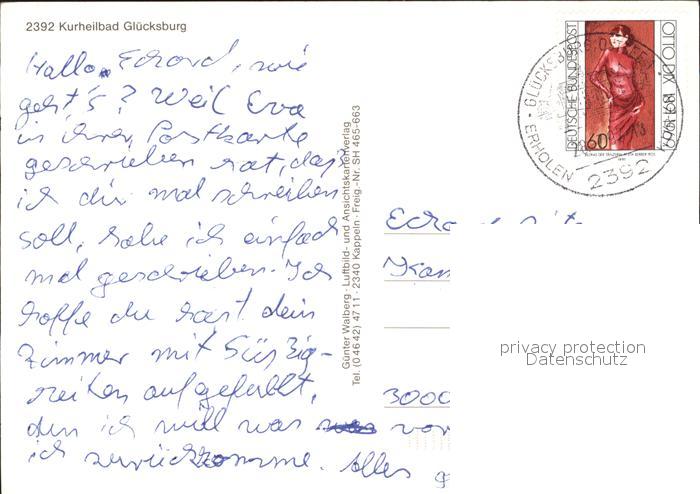 2392 Kurheilbad Glücksburg
Hallo Eckard, wie
geht's? Weil Eva
in ihrer Postkarte
geschrieben hat, daß
ich dir mal schreiben
soll, habe ich einfach
mal geschrieben. Ich
hoffe du hast dein
Zimmer mit Süßig-
keiten aufgefüllt,
den ich will was vor
ich zurückkomme. Alles
Günter Walberg · Luftbild- und Ansichtskartenverlag
Tel. (0 46 42) 47 11 · 2340 Kappeln · Freig.-Nr. SH 465-663
DEUTSCHE BUNDESPOST
60
OTTO DIX 1891-1969
ERHOLEN
2392
3000
privacy protection
Datenschutz